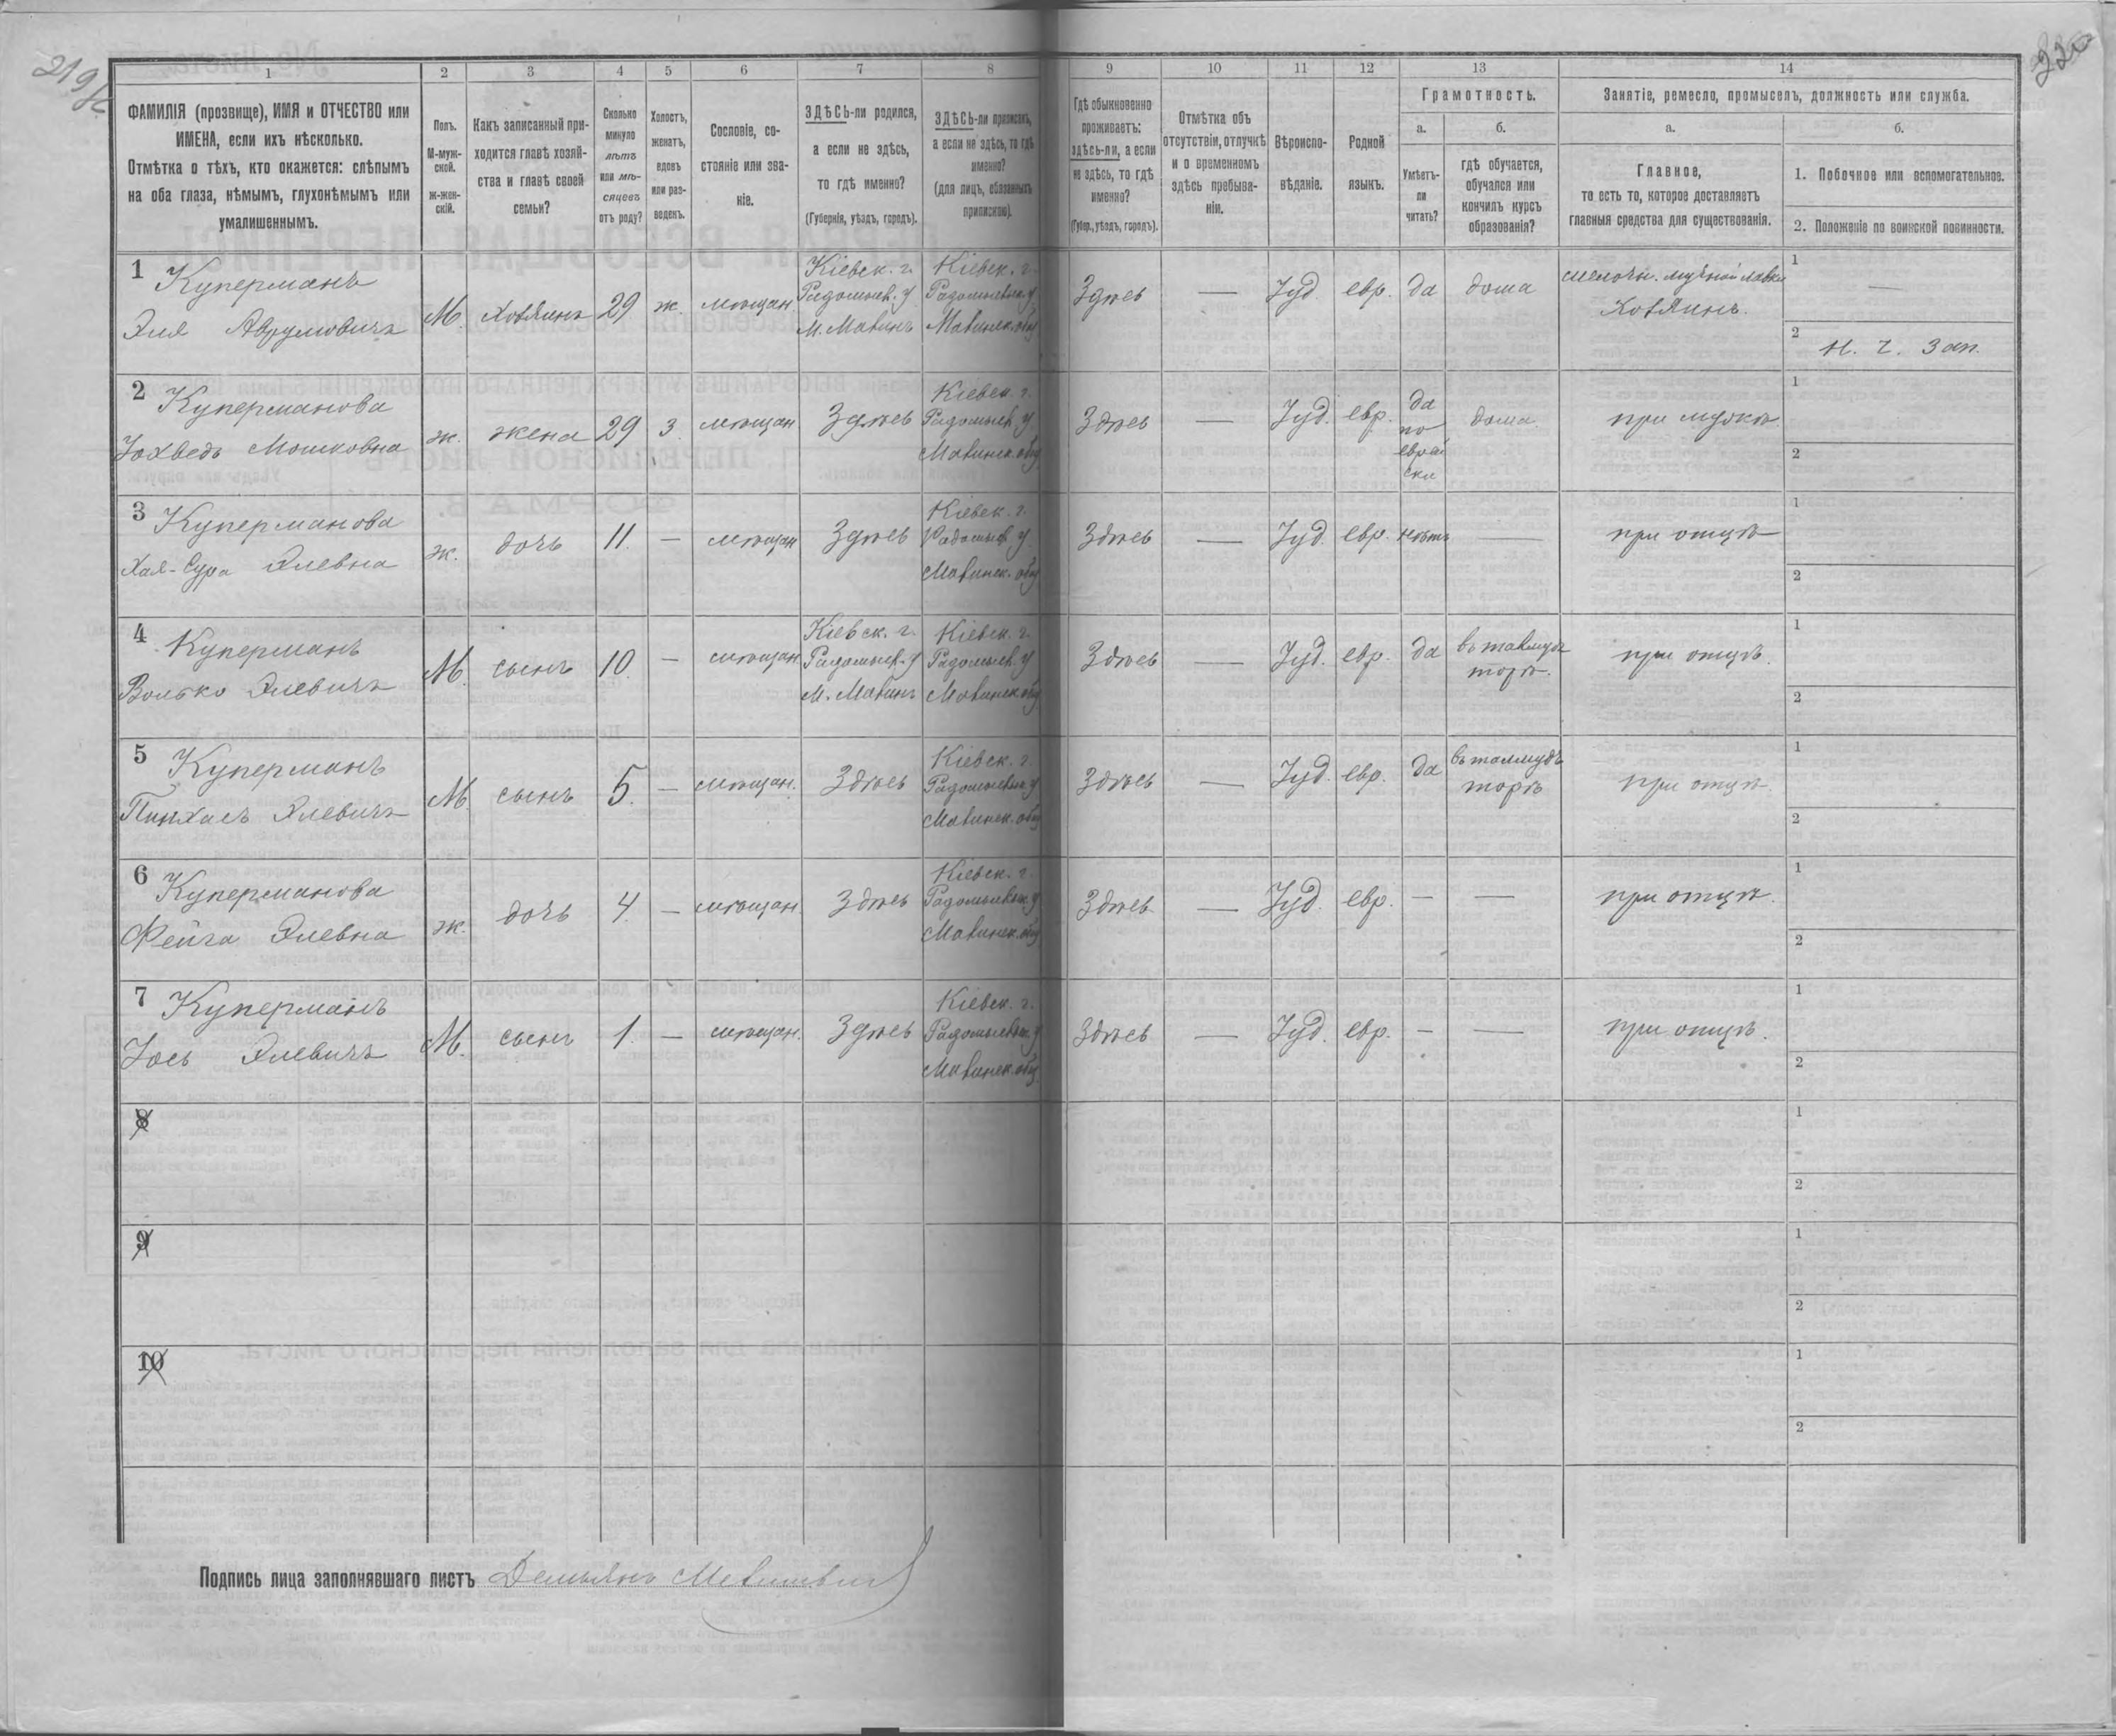 219 об.
220
1 2 3 4 5 6 7 8 9 10 11 12 13 14
ФАМИЛІЯ (прозвище), ИМЯ и ОТЧЕСТВО или
ИМЕНА, если ихъ нѣсколько.
Отмѣтка о тѣхъ, кто окажется: слѣпымъ
на оба глаза, нѣмымъ, глухонѣмымъ или
умалишеннымъ.
Полъ.
М-муж-
ской.
ж-жен-
скій.
Какъ записанный при-
ходится главѣ хозяй-
ства и главѣ своей
семьи?
Сколько
минуло
лѣтъ
или мѣ-
сяцевъ
отъ роду?
Холостъ,
женатъ,
вдовъ
или раз-
веденъ.
Сословіе, со-
стояніе или зва-
ніе.
ЗДѢСЬ-ли родился,
а если не здѣсь,
то гдѣ именно?
(Губернія, уѣздъ, городъ).
ЗДѢСЬ-ли приписанъ,
а если не здѣсь, то гдѣ
именно?
(для лицъ, обязанныхъ
припискою).
Гдѣ обыкновенно
проживаетъ:
здѣсь-ли, а если
не здѣсь, то гдѣ
именно?
(Губер., уѣздъ, городъ).
Отмѣтка объ
отсутствіи, отлучкѣ
и о временномъ
здѣсь пребыва-
ніи.
Вѣроиспо-
вѣданіе.
Родной
языкъ.
Грамотность.
а.
Умѣетъ-
ли
читать?
б.
гдѣ обучается,
обучался или
кончилъ курсъ
образованія?
Занятіе, ремесло, промыселъ, должность или служба.
а.
Главное,
то есть то, которое доставляетъ
главныя средства для существованія.
б.
1. Побочное или вспомогательное.
2. Положеніе по воинской повинности.
1 Куперманъ
Эля Аврумовичъ
М. хозяинъ 29 ж. мѣщан.
Кіевск. г.
Радомысл. у
М. Макинъ
Кіевск. г.
Радомысльск. у
Здѣсь — Іуд. евр. да дома
мелочн. мучной лавки
хозяинъ.
1 —
2 н. ч. зап.
2 Куперманова
Іохведь Мошковна
ж. жена 29 з. мѣщан. Здѣсь
Кіевск. г.
Радомысл. у
Здѣсь — Іуд. евр.
да
по
еврей
ски
дома при мужѣ
1
2
3 Куперманова
Хая-Сура Элевна
ж. дочь 11. — мѣщан Здѣсь
Кіевск. г.
Радомысл. у
Здѣсь — Іуд. евр. нѣтъ — при отцѣ
1
2
4 Куперманъ
Волько Элевичъ
М. сынъ 10. — мѣщан
Кіевск. г.
Радомысл. у
Кіевск. г.
Радомысл. у
Здѣсь — Іуд. евр. да
въ талмудъ
торѣ.
при отцѣ.
1
2
5 Куперманъ
Пинхасъ Элевичъ
М. сынъ 5. — мѣщан. Здѣсь
Кіевск. г.
Радомысльск. у
Здѣсь — Іуд. евр. да
въ талмудъ
торѣ
при отцѣ.
1
2
6 Куперманова
Фейга Элевна
ж. дочь 4. — мѣщан. Здѣсь
Кіевск. г.
Радомысльск. у
Здѣсь — Іуд. евр. — — при отцѣ.
1
2
7 Куперманъ
Іось Элевичъ
М. сынъ 1. — мѣщан. Здѣсь
Кіевск. г.
Радомысльск. у
Здѣсь — Іуд. евр. — — при отцѣ.
1
2
8
1
2
9
1
2
10
1
2
Подпись лица заполнявшаго листъ Демьянъ